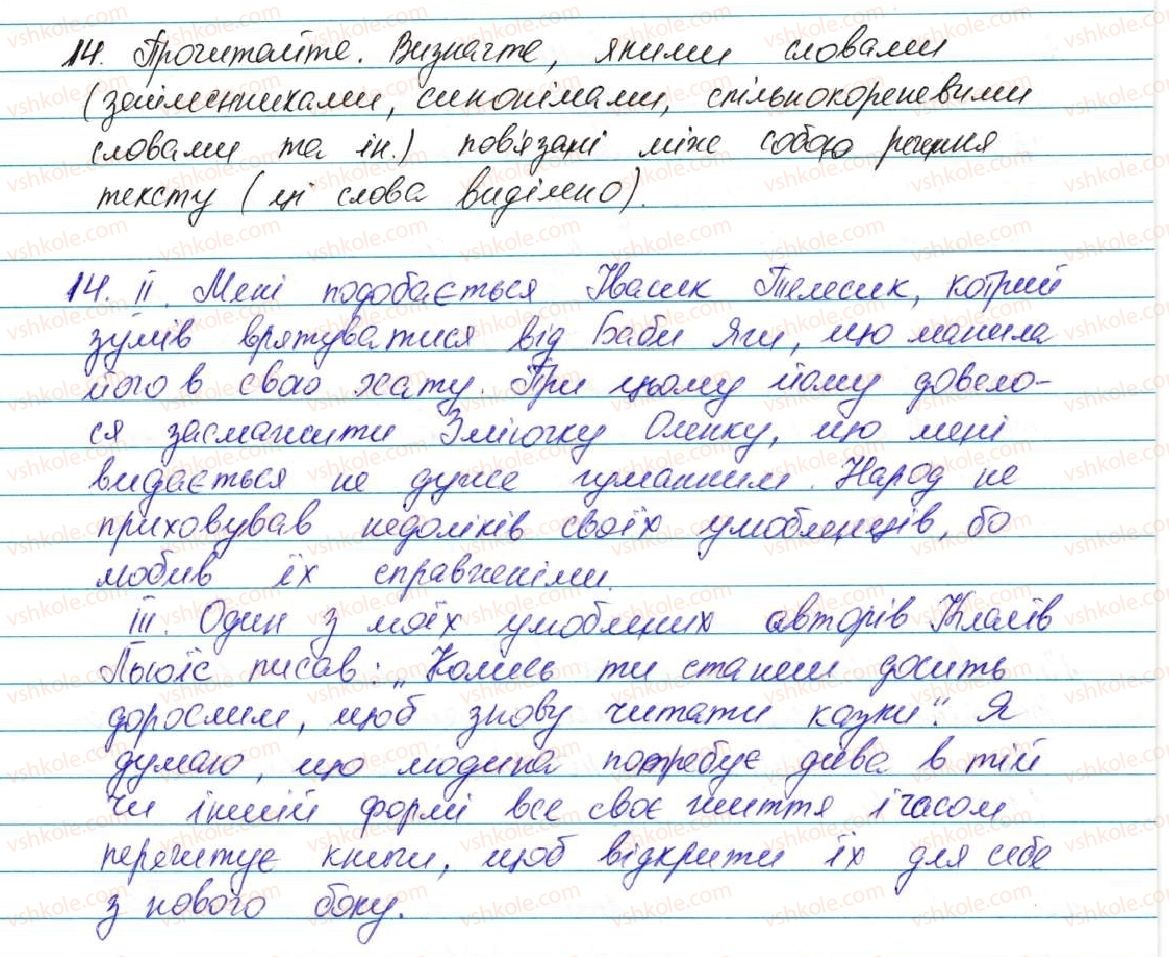 14. Прочитайте. Визначте, якими словами
(займенниками, синонімами, спільнокореневими
словами та ін.) пов'язані між собою речення
тексту (ці слова виділено).
14. II. Мені подобається Івасик Телесик, котрий
зумів врятуватися від Баби Яги, що манила
його в свою хату. При цьому йому довело-
ся засмажити Зміючку Оленку, що мені
видається не дуже гуманним. Народ не
приховував недоліків своїх улюбленців, бо
любив їх справжніми.
III. Один з моїх улюблених авторів Клайв
Льюїс писав: „Колись ти станеш досить
дорослим, щоб знову читати казки". Я
думаю, що людина потребує дива в тій
чи іншій формі все своє життя і часом
перечитує книги, щоб відкрити їх для себе
з нового боку.
vshkole.com